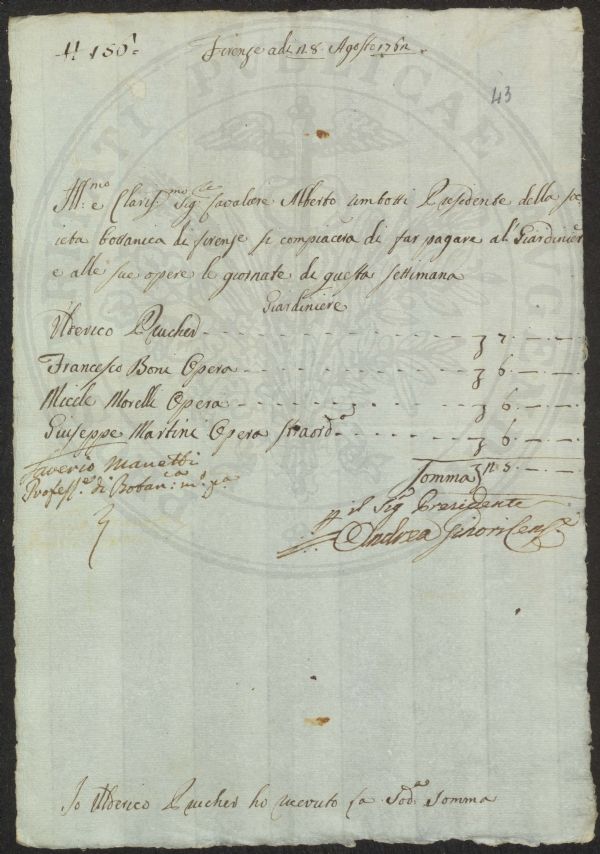 # 180.
Firenze adì 18 Agosto 1762.
43
Ill:mo e Claris:mo Sig:re Cavaliere Alberto Umbotti Presidente della So=
cieta bottanica di firenze si compiacera di far pagare al Giardinier
e alle sue opere le giornate di questa settimana
Giardiniere
Ulderico Prucher 7
Francesco Boni Opera 6
Micele Morelli Opera 6
Giuseppe Martini Opera Straord.a 6
Saverio Manetti
Profess.e di Botan:ca m:o p.a
Somma
p il Sig Presidente
Andrea Ginori Cens.e
Io Ulderico Prucher ho riceuto la Sod.a Somma